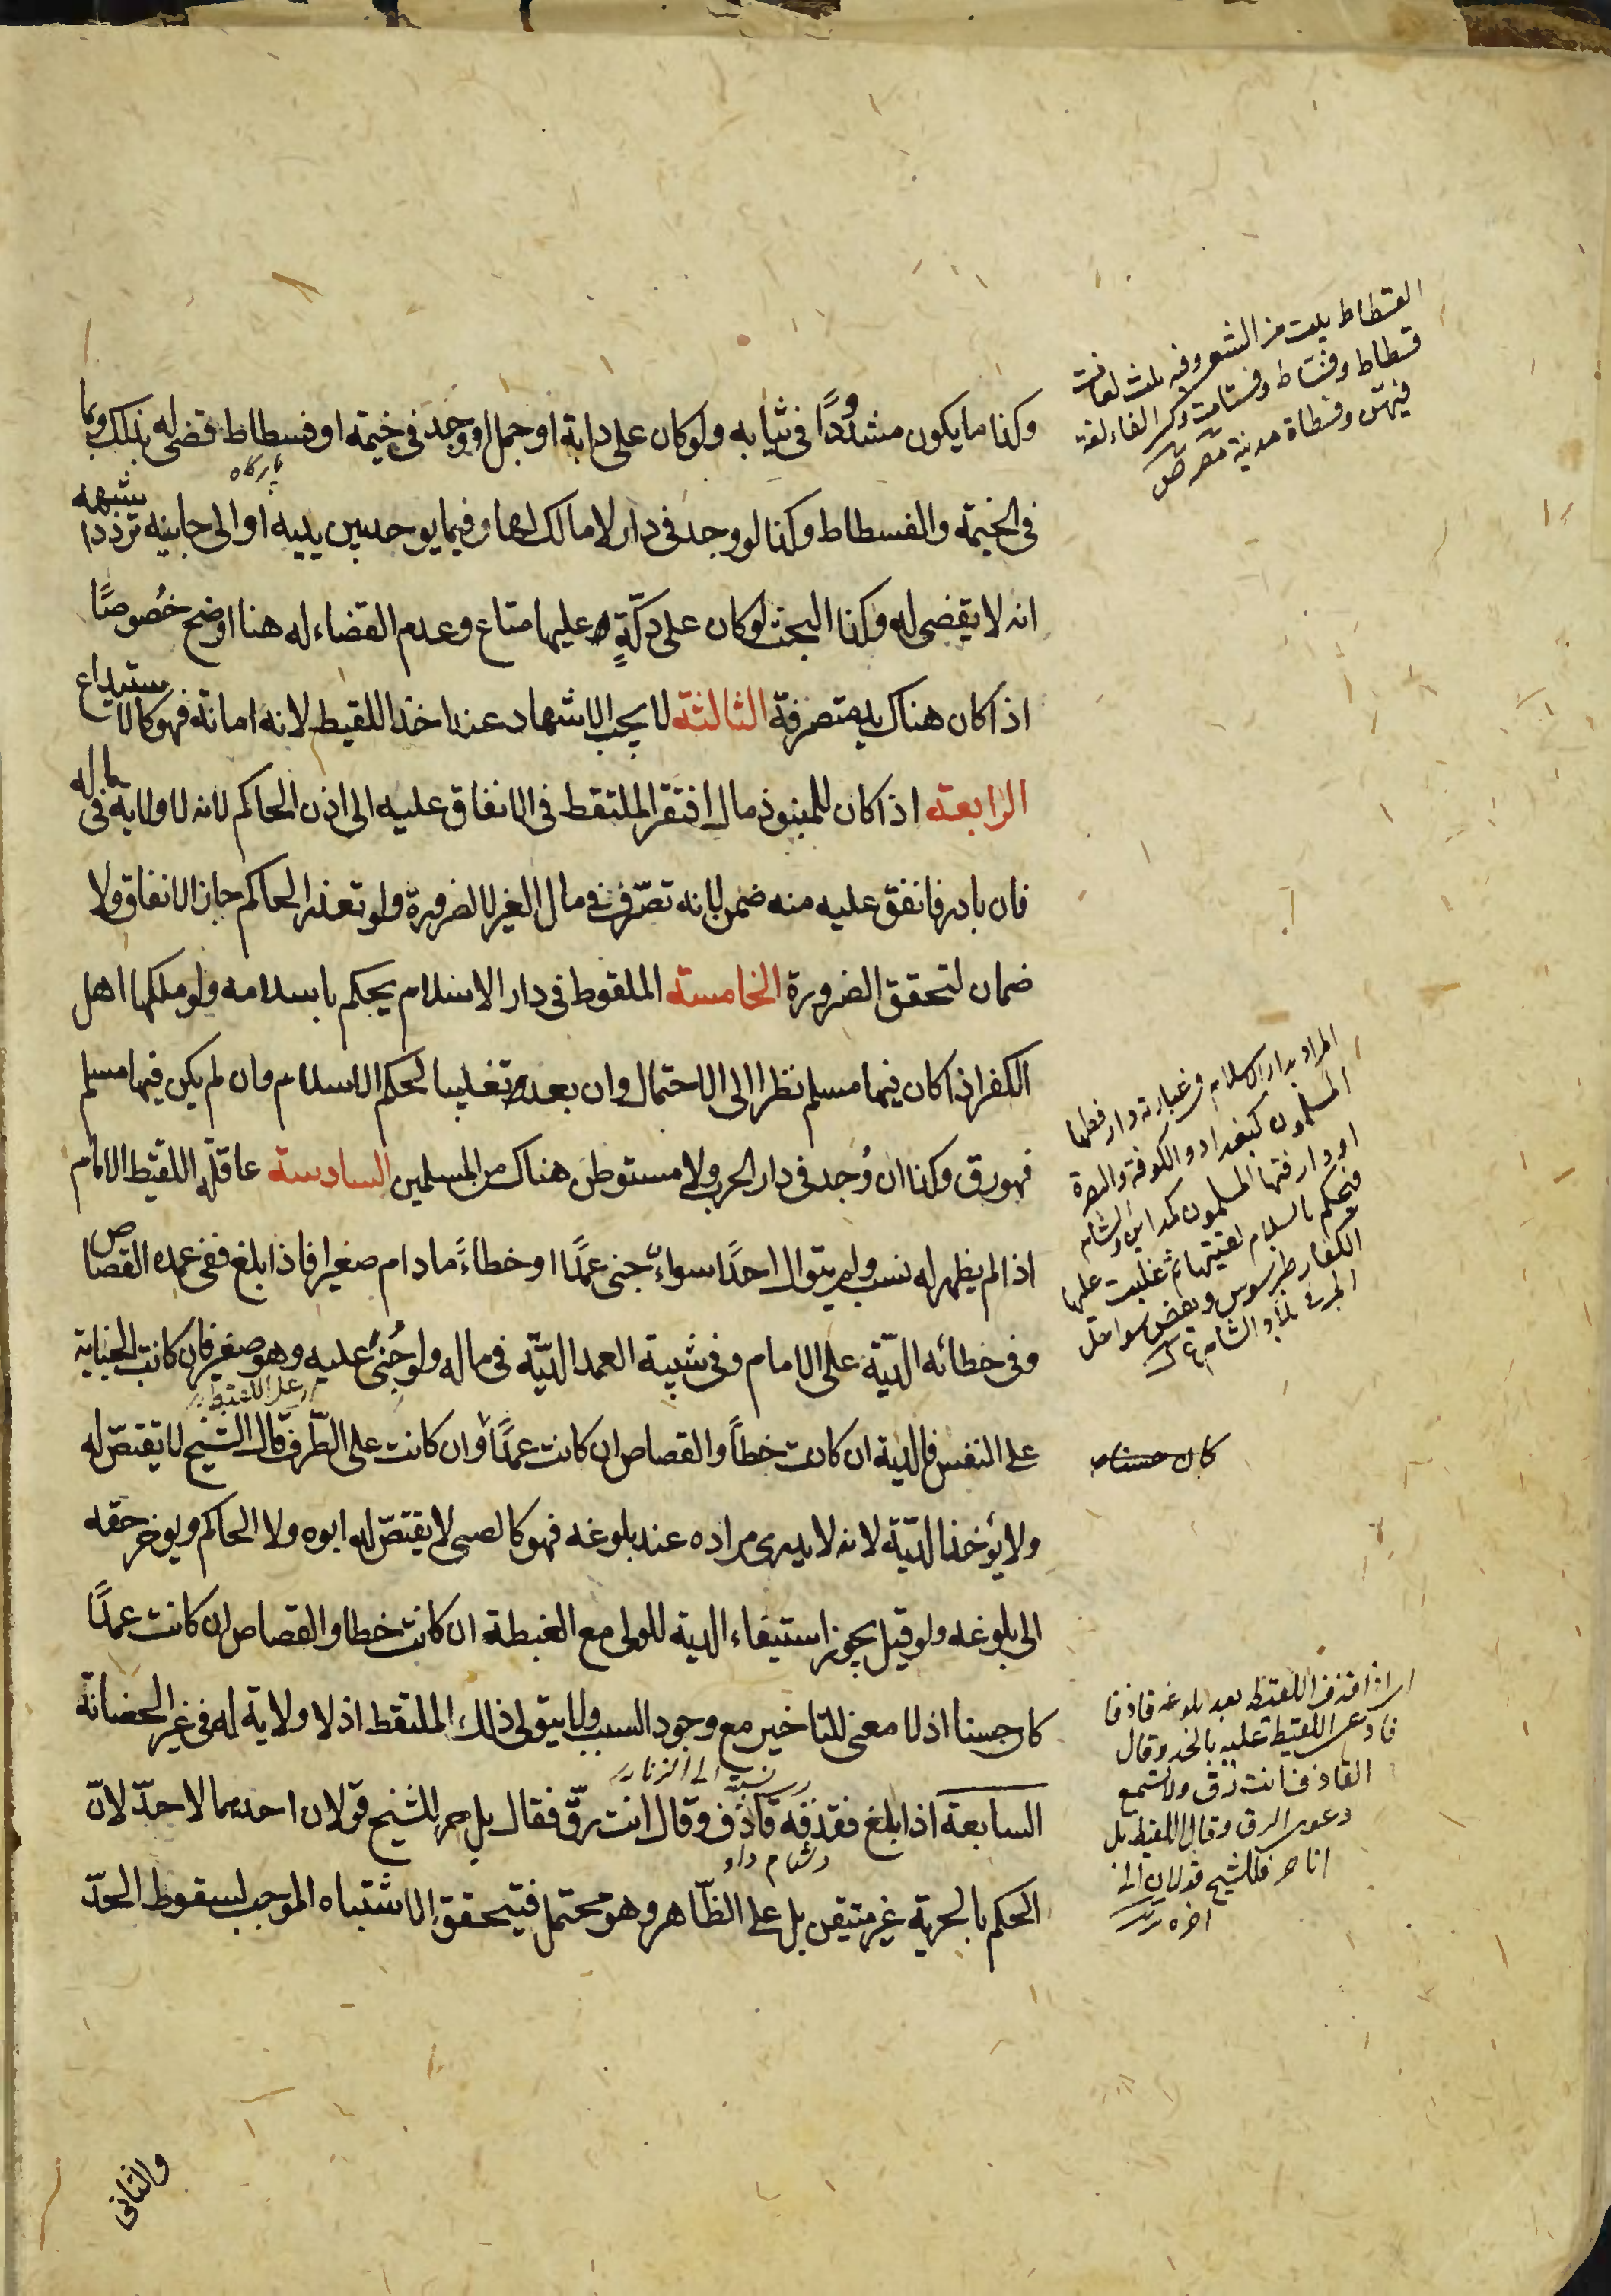 وكذا ما يكون مشدودًا في ثيابه ولو كان على دابة او جمل او وجد في خيمة او فسطاط قضى له بذلك وبما
بارگاه
في الخيمة والفسطاط وكذا لو وجد في دار لا مالك لها وفيما يوجد بين يديه او الى جانبيه تردد اشبهه
انه لا يقضى له وكذا البحث لو كان على دكّةٍ وعليها متاع وعدم القضاء له هنا اوضح خُصوصًا
اذا كان هناك يد متصرفة الثالثة لا يجب الاشهاد عند اخذ اللقيط لانه امانة فهو كالاستيداع
الرابعة اذا كان للمنبوذ مال افتقر الملتقط في الانفاق عليه الى اذن الحاكم لانه لا ولاية في ماله
فان بادر فانفق عليه منه ضمن لانه تصرّف في مال الغير لا لضرورة ولو تعذر الحاكم جاز الانفاق ولا
ضمان لتحقق الضرورة الخامسة الملقوط في دار الاسلام يحكم باسلامه ولو ملكها اهل
الكفر اذا كان فيها مسلم نظرا الى الاحتمال وان بعد تغليبا لحكم الاسلام وان لم يكن فيها مسلم
فهو رق وكذا ان وُجد في دار الحرب ولا مستوطن هناك من المسلمين السادسة عاقلة اللقيط الامام
اذا لم يظهر له نسب ولم يتوال احدًا سواءٌ جنى عمدًا او خطاءً ما دام صغيرا فاذا بلغ ففي عمده القصاص
وفي خطائه الدّية على الامام وفي شبيه العمد الديّة في ماله ولو جُنى عليه وهو صغير فان كانت الجناية
على اللقيط
على النفس فالدية ان كانت خطأً والقصاص ان كانت عمدًا وان كانت على الطّرف قال الشيخ لا يقتصّ له
ولا يؤخذ الديّة لانه لا يدرى مراده عند بلوغه فهو كالصبي لا يقتصّ له ابوه ولا الحاكم ويؤخر حقه
الى بلوغه ولو قيل يجوز استيفاء الدية للولي مع الغبطة ان كانت خطا والقصاص ان كانت عمدًا
كان حسنا اذ لا معنى للتاخير مع وجود السبب ولا يتولى ذلك الملتقط اذ لا ولاية له في غير الحضانة
نسبته الى الزنا
السابعة اذا بلغ فقذفه قاذف وقال انت رقّ فقال بل حر للشيخ قولان احدهما لا حدّ لانّ
دشنام داد
الحكم بالحرية غير متيقن بل على الظّاهر وهو محتمل فيتحقق الاشتباه الموجب لسقوط الحدّ
والثاني
الفسطاط بيت من الشعر وفيه ثلث لغات
فسطاط وفستاط وفستات وكسر الفاء لغة
فيهن وفسطاة مدينة مصر ص
المراد بدار الاسلام في عبارته دار فعلها
المسلمون كبغداد والكوفة والبصرة
او دار فتحها المسلمون كمداين والشام
فيحكم باسلام لقيتها ثم غلبت عليها
الكفار طرسوس وبعض سواحل
كان حسنا
اى اذا قذف اللقيط بعد بلوغه قاذفا
فادعى اللقيط عليه بالحد وقال
القاذف انت رق ولا تسمع
دعوى الرق وقال اللقيط بل
انا حر فللشيخ قولان الى
اخره